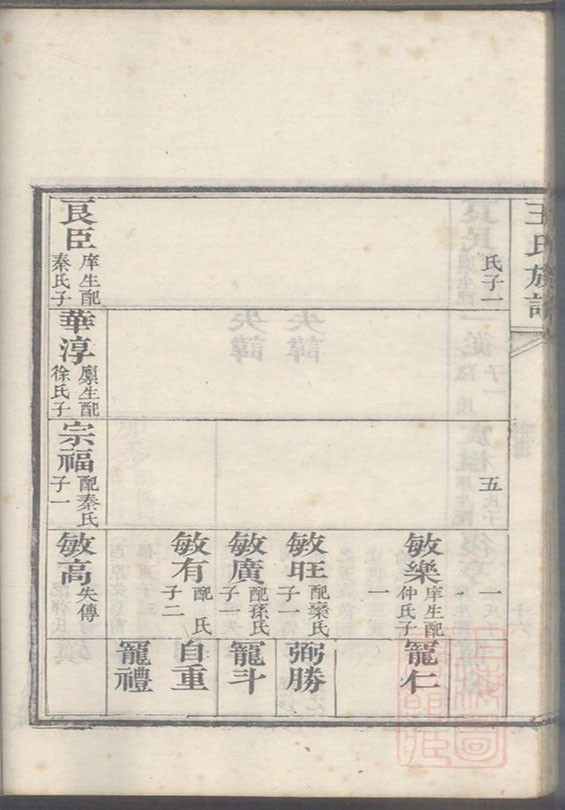 王氏族譜
氏子一
五
一
敏樂 庠生配
仲氏子
一
寵仁
敏旺 配欒氏
子一
弼勝
敏廣 配孫氏
子一
寵斗
敏有 配 氏
子二
自重
寵禮
良臣 庠生配
秦氏子
華淳 廪生配
徐氏子
宗福 配秦氏
子一
敏高 失傳